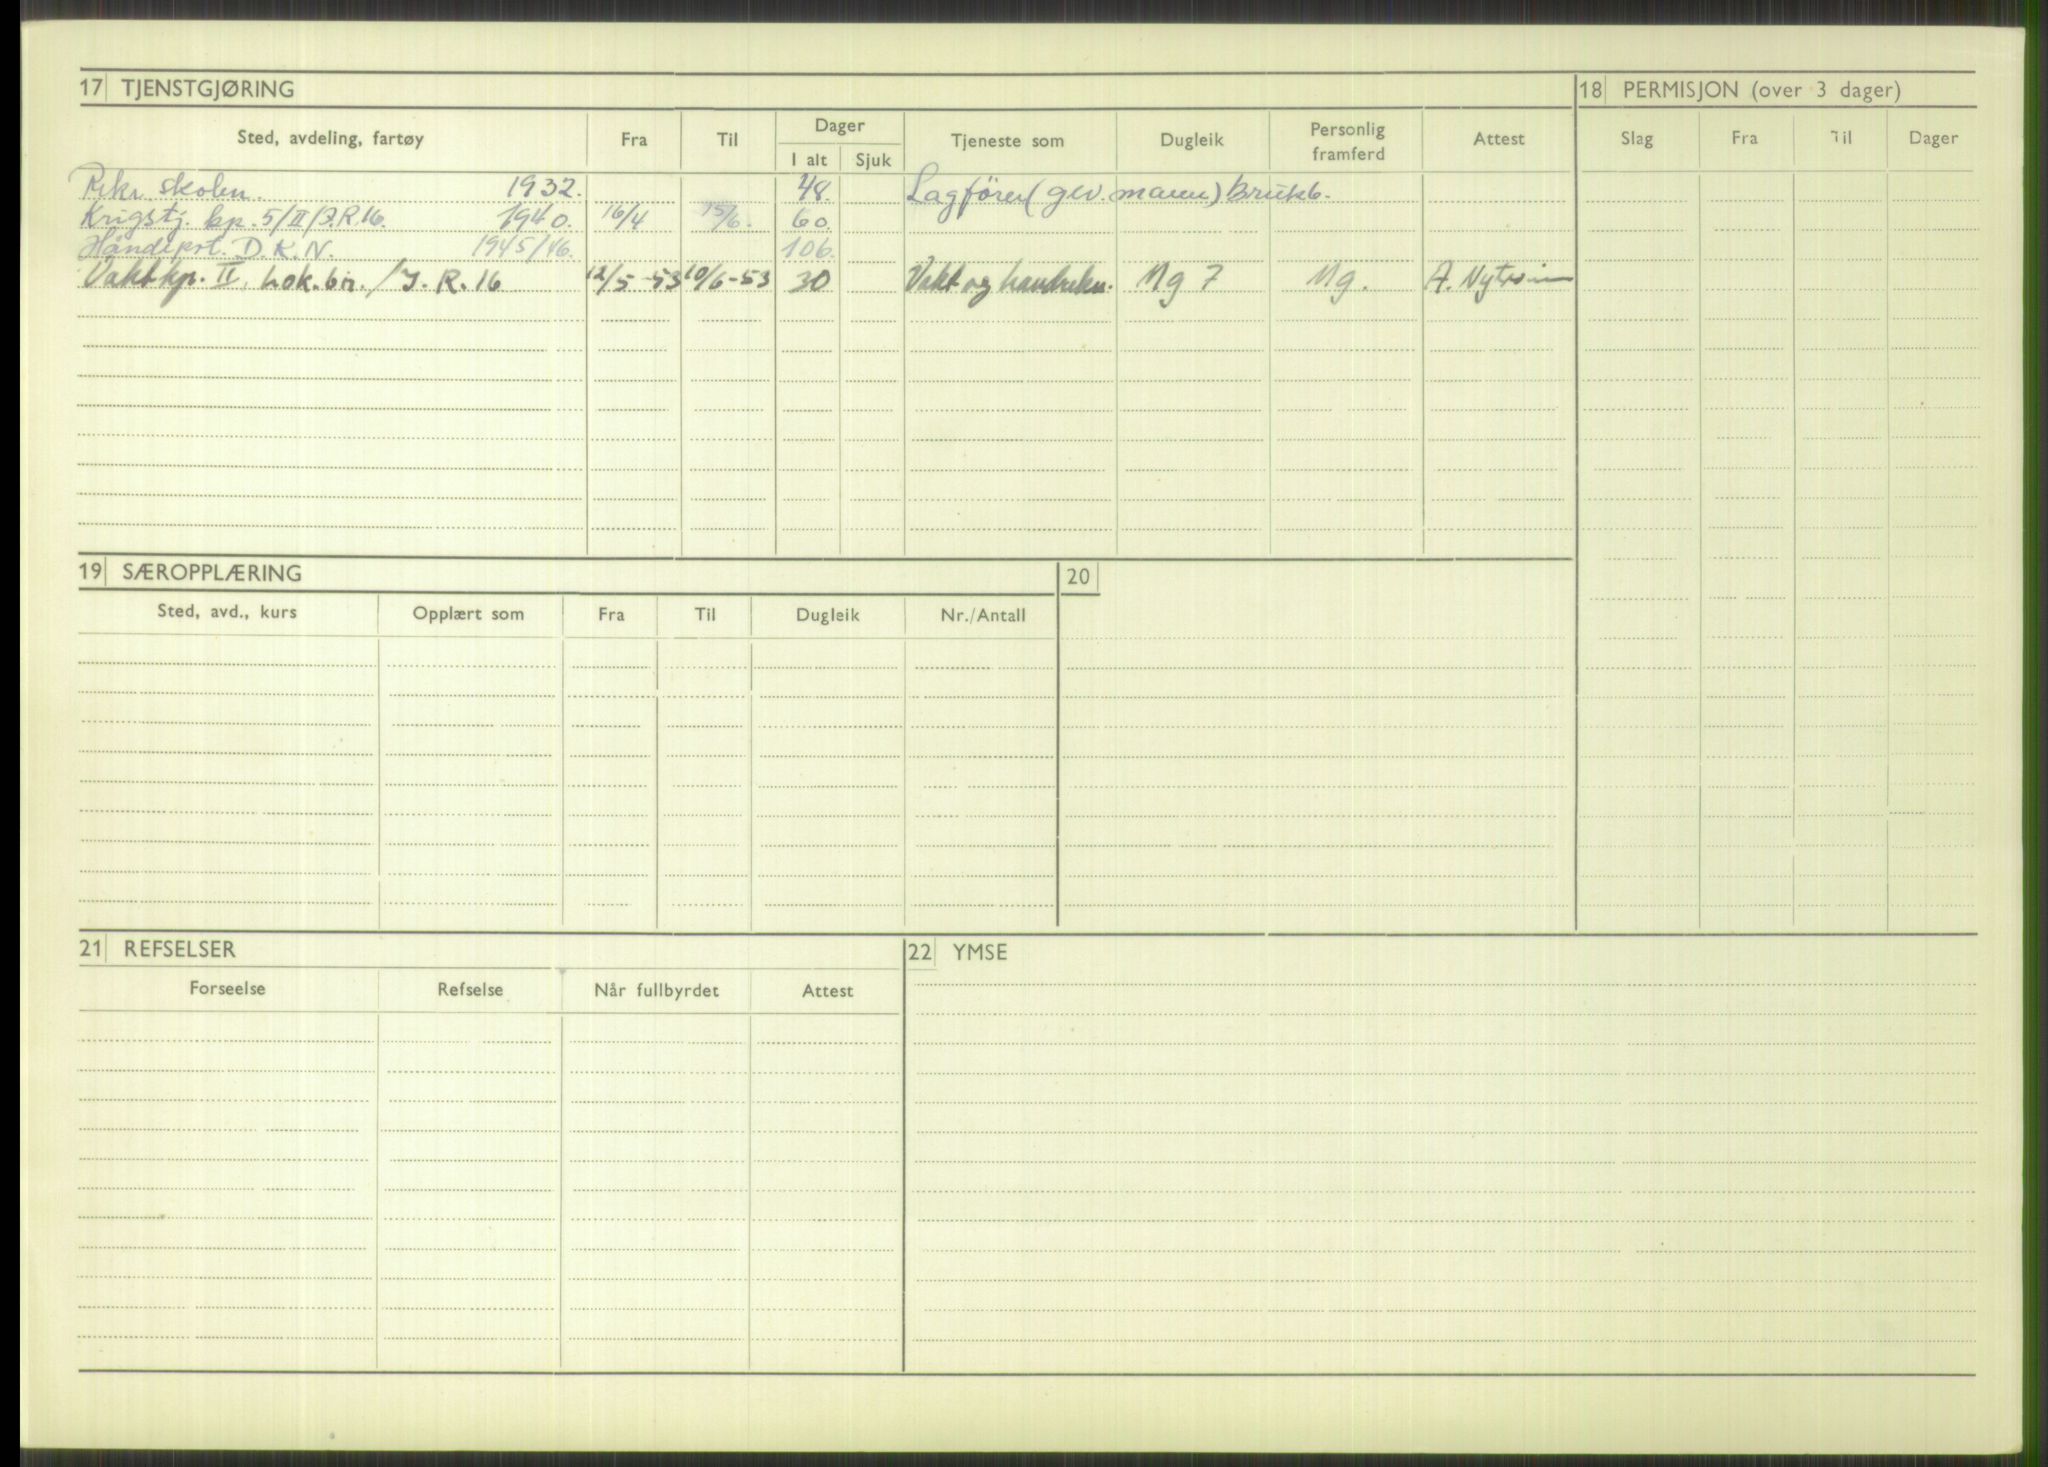 17 TJENSTGJØRING
18 PERMISJON (over 3 dager)
Sted, avdeling, fartøy Fra Til Dager Tjeneste som Dugleik Personlig framferd Attest Slag Fra Til Dager
I alt Sjuk
Rekr. skolen. 1932. 48. Lagfører (gev. mann) Brukb.
Krigstj. kp. 5/II/I.R. 16. 1940. 16/4 15/6. 60.
D. K. N. 1945/46. 106.
Vaktkp. II, Lok.bn./I.R. 16 12/5-53 10/6-53 30 Vakt og Mg 7 Mg. A.
19 SÆROPPLÆRING
20
Sted, avd., kurs Opplært som Fra Til Dugleik Nr./Antall
21 REFSELSER
22 YMSE
Forseelse Refselse Når fullbyrdet Attest